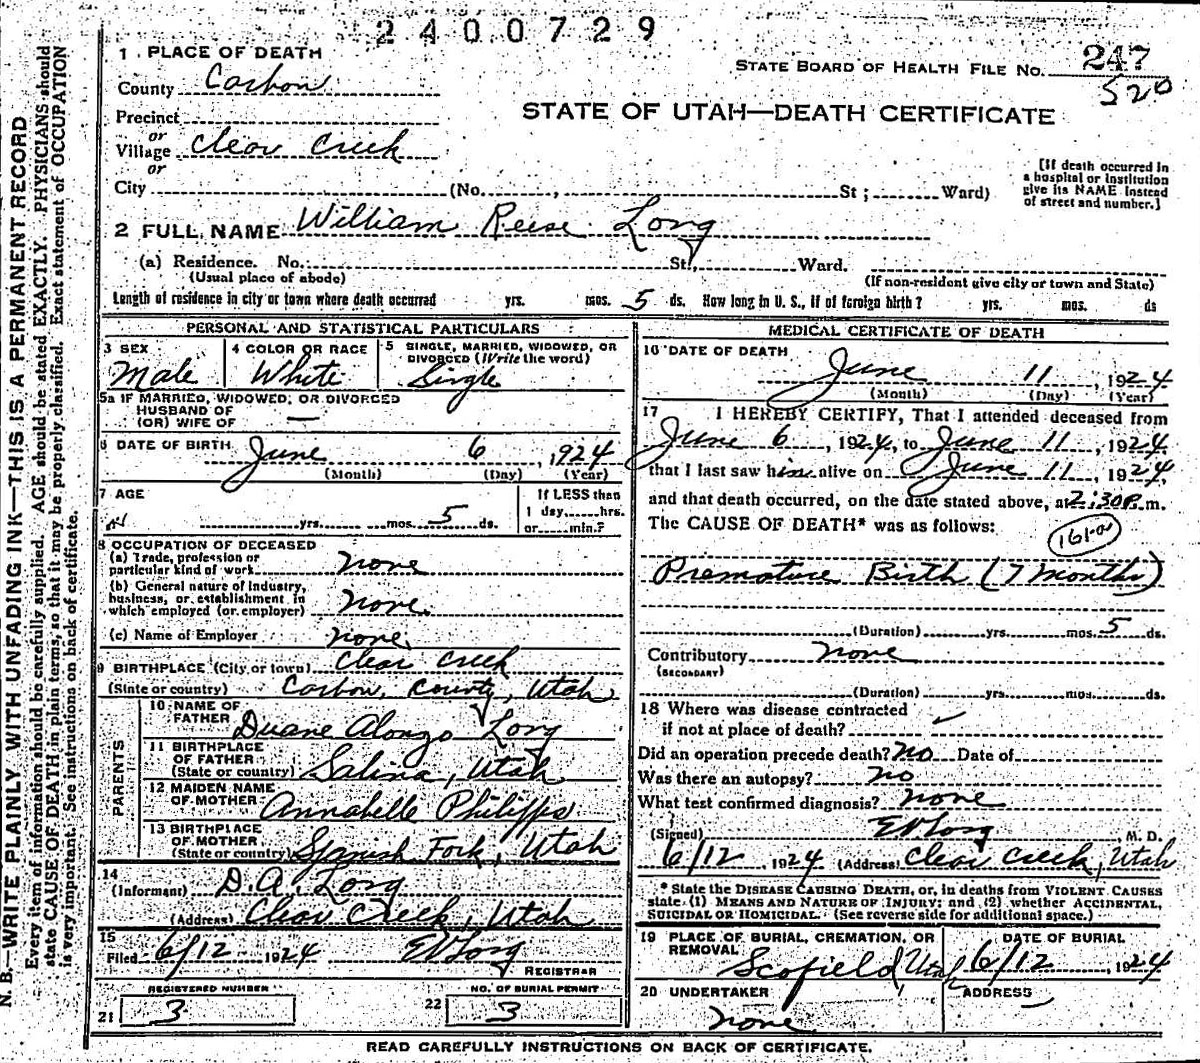 2400729
1 PLACE OF DEATH
STATE BOARD OF HEALTH FILE NO. 247
520
County Carbon
STATE OF UTAH—DEATH CERTIFICATE
Precinct
or
Village Clear Creek
or
City (No. , St; Ward)
[If death occurred in
a hospital or institution
give its NAME instead
of street and number.]
2 FULL NAME William Reese Long
(a) Residence. No. St., Ward.
(Usual place of abode)
(If non-resident give city or town and State)
Length of residence in city or town where death occurred yrs. mos. 5 ds. How long in U. S., if of foreign birth? yrs. mos. ds
PERSONAL AND STATISTICAL PARTICULARS
3 SEX
Male
4 COLOR OR RACE
White
5 SINGLE, MARRIED, WIDOWED, OR
DIVORCED (Write the word)
Single
5a IF MARRIED, WIDOWED, OR DIVORCED
HUSBAND OF
(OR) WIFE OF —
6 DATE OF BIRTH June 6, 924
(Month) (Day) (Year)
7 AGE
yrs. mos. 5 ds.
If LESS than
1 day, hrs.
or min.?
8 OCCUPATION OF DECEASED
(a) Trade, profession or
particular kind of work none
(b) General nature of industry,
business, or establishment in
which employed (or employer) none.
(c) Name of Employer none
9 BIRTHPLACE (City or town) Clear Creek
(State or country) Carbon, County, Utah
PARENTS
10 NAME OF
FATHER Duane Alonzo Long
11 BIRTHPLACE
OF FATHER
(State or country) Salina, Utah
12 MAIDEN NAME
OF MOTHER Annabelle Philipps
13 BIRTHPLACE
OF MOTHER
(State or country) Spanish Fork, Utah
14
(Informant) D.A. Long
(Address) Clear Creek, Utah
15
Filed 6/12 1924 EV Long
REGISTRAR
REGISTERED NUMBER
21 3
NO. OF BURIAL PERMIT
22 3
MEDICAL CERTIFICATE OF DEATH
16 DATE OF DEATH
June 11, 1924
(Month) (Day) (Year)
17 I HEREBY CERTIFY, That I attended deceased from
June 6, 1924, to June 11, 1924
that I last saw him alive on June 11, 1924,
and that death occurred, on the date stated above, at 2:30 P. m.
The CAUSE OF DEATH* was as follows:
161-a
Premature Birth (7 months)
(Duration) yrs. mos. 5 ds.
Contributory none
(SECONDARY)
(Duration) yrs. mos. ds.
18 Where was disease contracted
if not at place of death?
Did an operation precede death? no Date of
Was there an autopsy? no
What test confirmed diagnosis? none
(Signed) EV Long M. D.
6/12, 1924 (Address) Clear Creek, Utah
* State the DISEASE CAUSING DEATH, or, in deaths from VIOLENT CAUSES
state (1) MEANS AND NATURE OF INJURY; and (2) whether ACCIDENTAL,
SUICIDAL OR HOMICIDAL. (See reverse side for additional space.)
19 PLACE OF BURIAL, CREMATION, OR
REMOVAL
Scofield, Utah
DATE OF BURIAL
6/12, 1924
20 UNDERTAKER
none
ADDRESS
READ CAREFULLY INSTRUCTIONS ON BACK OF CERTIFICATE.
N. B.—WRITE PLAINLY WITH UNFADING INK—THIS IS A PERMANENT RECORD
Every item of information should be carefully supplied. AGE should be stated EXACTLY. PHYSICIANS should
state CAUSE OF DEATH in plain terms, so that it may be properly classified. Exact statement of OCCUPATION
is very important. See instructions on back of certificate.